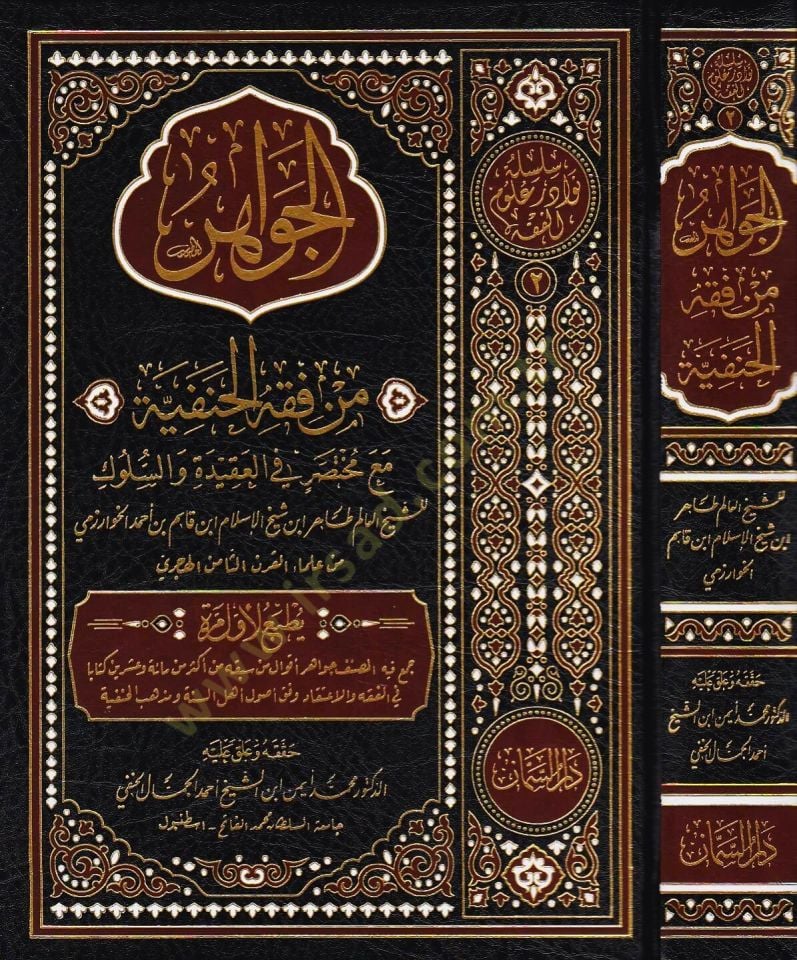 الجَوَاهِرُ
مِنْ فِقْهِ الحَنَفِيَّة
مَعَ مُخْتَصَرٍ فِي العَقِيدَةِ وَالسُّلُوكِ
للشيخ العالم طاهر ابن شيخ الإسلام ابن قاسم بن أحمد الخوارزمي
من علماء القرن الثامن الهجري
يُطْبَعُ لأوّل مَرّة
جمع فيه المصنف جواهر أقوال من سبقه من أكثر من مائة وعشرين كتابا
في الفقه والاعتقاد وفق أصول أهل السنة ومذهب الحنفية
حَقَّقَهُ وَعَلَّقَ عَلَيْهِ
الدكتور محمد أيمن ابن الشيخ أحمد الجمَّال الحنفي
جامعة السلطان محمد الفاتح - اسطنبول
سلسلة
نوادر علوم
الفقه
٢
دار السمان
سلسلة
نوادر علوم
الفقه
٢
الجَوَاهِرُ
مِنْ فِقْهِ
الحَنَفِيَّة
للشيخ العالم طاهر
ابن شيخ الإسلام ابن قاسم
الخوارزمي
حَقَّقَهُ وَعَلَّقَ عَلَيْهِ
الدكتور محمد أيمن ابن الشيخ
أحمد الجمَّال الحنفي
دار السمان